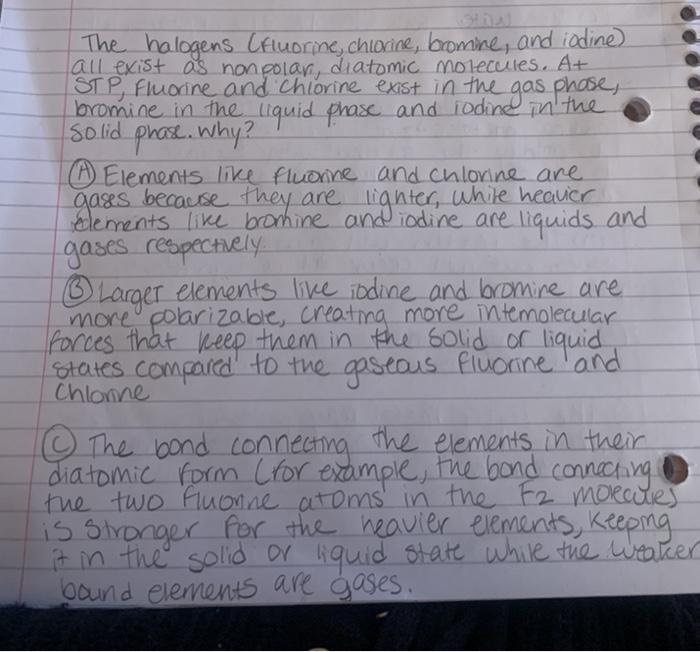 The halogens (fluorine, chlorine, bromine, and iodine)
all exist as nonpolar, diatomic molecules. At
STP, fluorine and chlorine exist in the gas phase,
bromine in the liquid phase and iodine in the
solid phase. Why?
(A) Elements like fluorine and chlorine are
gases because they are lighter, while heavier
elements like bromine and iodine are liquids and
gases respectively.
(B) Larger elements like iodine and bromine are
more polarizable, creating more intemolecular
forces that keep them in the solid or liquid
states compared to the gaseous fluorine and
chlorine
(C) The bond connecting the elements in their
diatomic form (for example, the bond connecting
the two fluorine atoms in the F2 molecules
is stronger for the heavier elements, keeping
it in the solid or liquid state while the weaker
bound elements are gases.